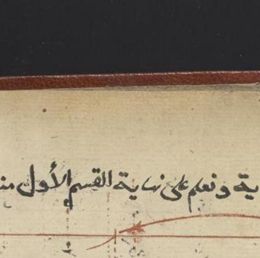 ية ونعلم على نهاية القسم الأول من